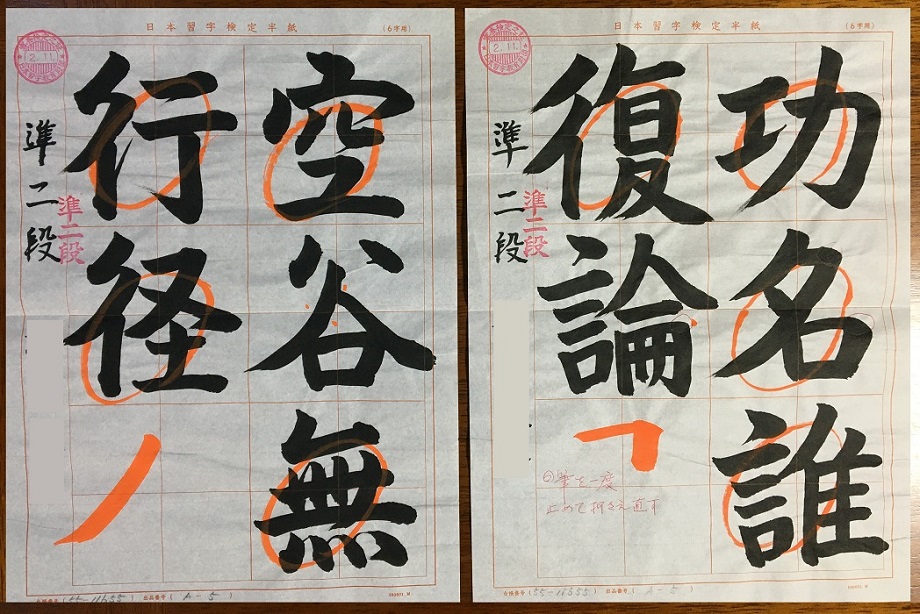 日本習字検定半紙
(6字用)
空谷無
行径
準二段
準二段
2.11.
(A-5)
日本習字検定半紙
(6字用)
功名誰
復論
準二段
準二段
2.11.
筆を一度
止めて押さえ直す
(A-5)